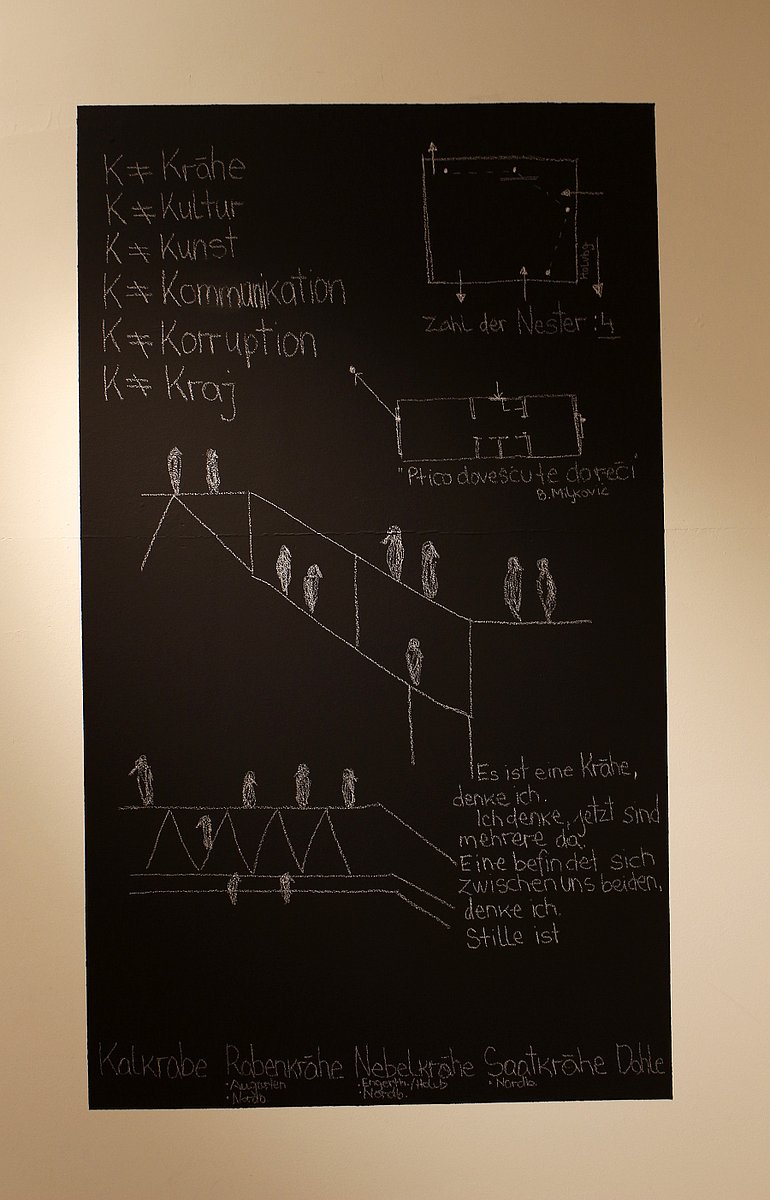 K ≠ Krähe
K ≠ Kultur
K ≠ Kunst
K ≠ Kommunikation
K ≠ Korruption
K ≠ Kraj
Zahl der Nester : 4
"Ptico dovešću te do reči"
B. Miljković
Es ist eine Krähe,
denke ich.
Ich denke, jetzt sind
mehrere da.
Eine befindet sich
zwischen uns beiden,
denke ich.
Stille ist
Kalkrabe Rabenkrähe Nebelkrähe Saatkrähe Dohle
· Augarten · Engerth./Holub · Nordb.
· Nordb · Nordb.